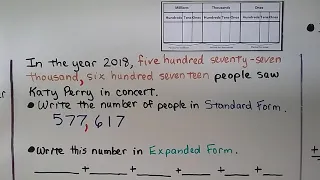 Millions Thousands Ones
Hundreds Tens Ones Hundreds Tens Ones Hundreds Tens Ones
In the year 2018, five hundred seventy-seven
thousand, six hundred seventeen people saw
Katy Perry in concert.
•Write the number of people in Standard Form.
577,617
•Write this number in Expanded Form.
+ + + + +